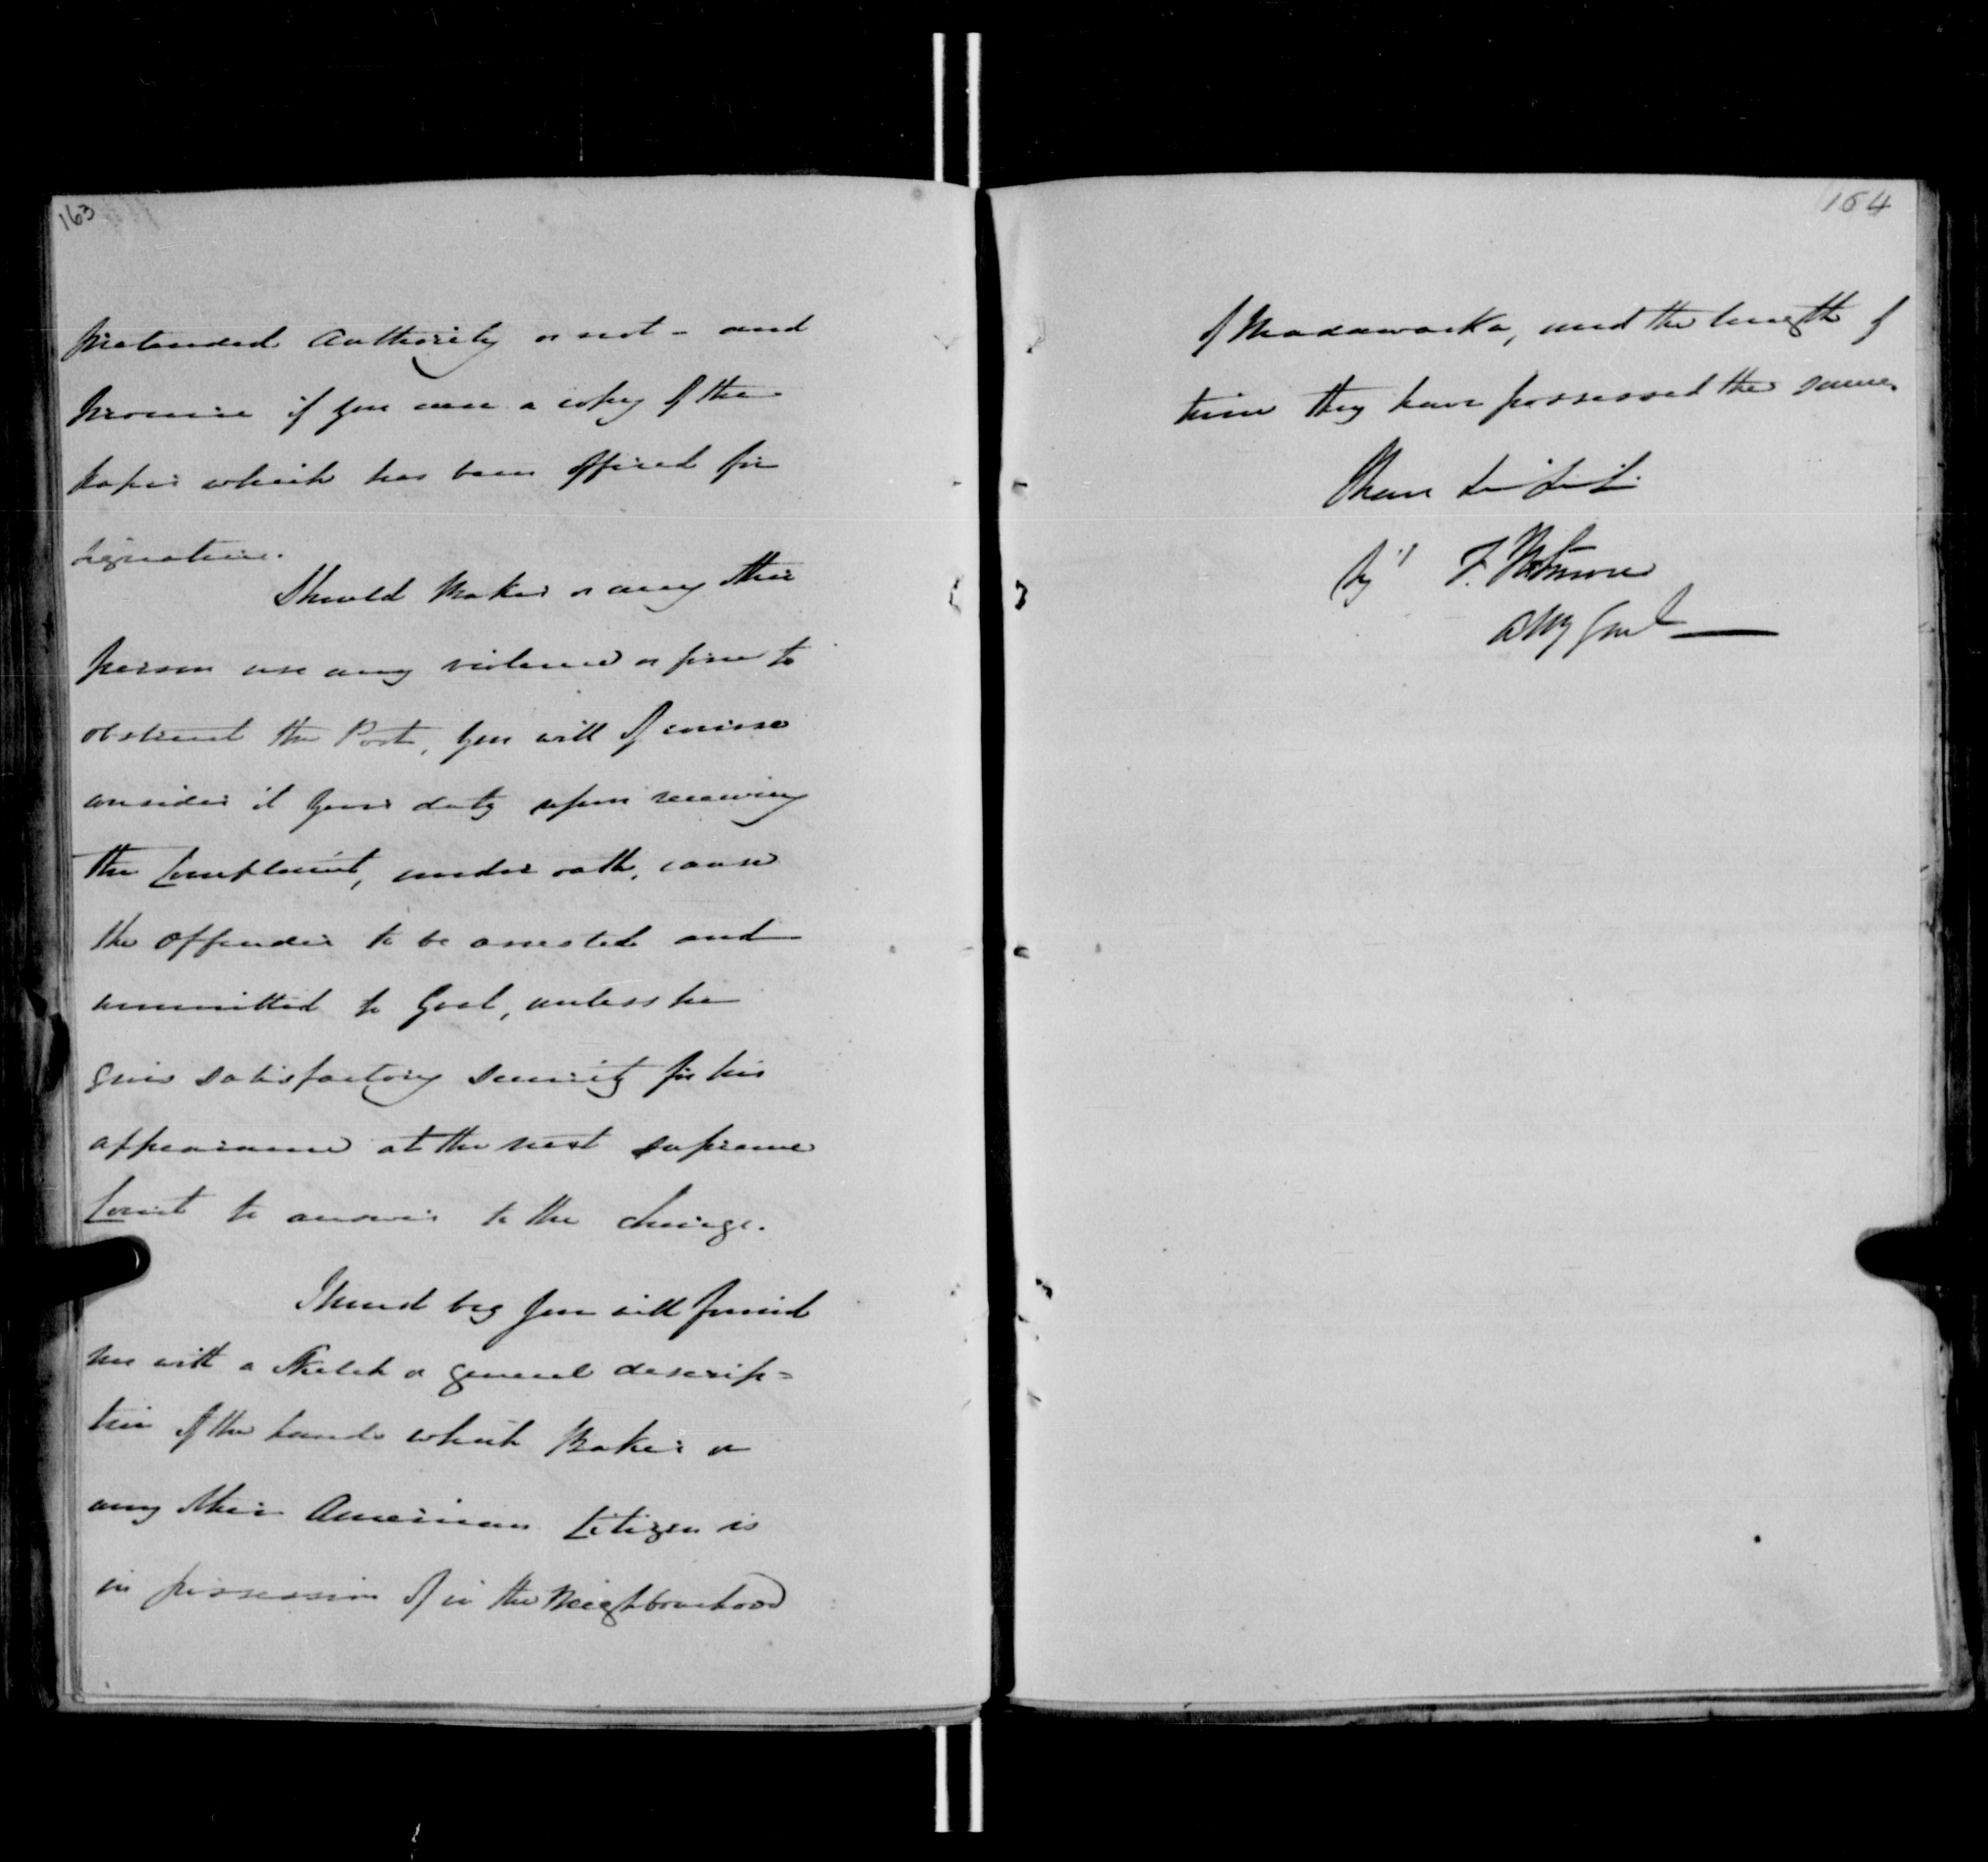 163
pretended Authority or not - and
procure if you can a copy of the
paper which has been offered for
signature.
Should Baker or any other
person use any violence or force to
obstruct the Post, you will of course
consider it your duty upon receiving
the Complaint, under oath, cause
the offender to be arrested and
committed to Goal, unless he
give satisfactory security for his
appearance at the next supreme
Court to answer to the charge.
I must beg you will furnish
me with a Sketch or general descrip=
tion of the lands which Baker or
any other American Citizen is
in possession of in the Neighbourhood
164
of Madawaska, and the length of
time they have possessed the same.
I have
F. Wetmore
Atty Genl